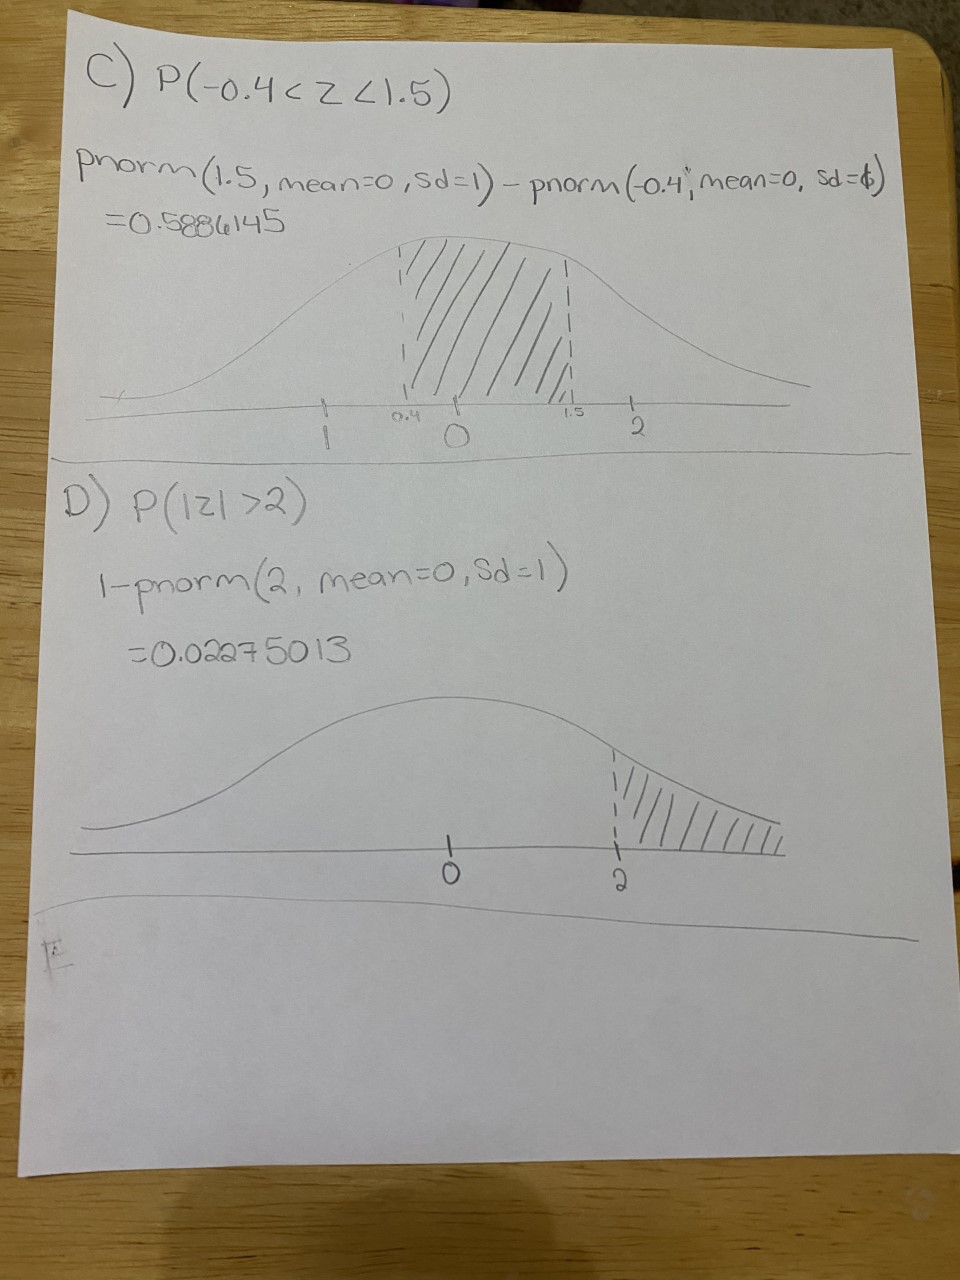 C) P(-0.4<Z<1.5)
pnorm(1.5, mean=0, sd=1) - pnorm(-0.4, mean=0, sd=1)
=0.5886145
0.4 1.5
1 0 2
D) P(|Z| >2)
1-pnorm(2, mean=0, Sd=1)
=0.02275013
0 2
E